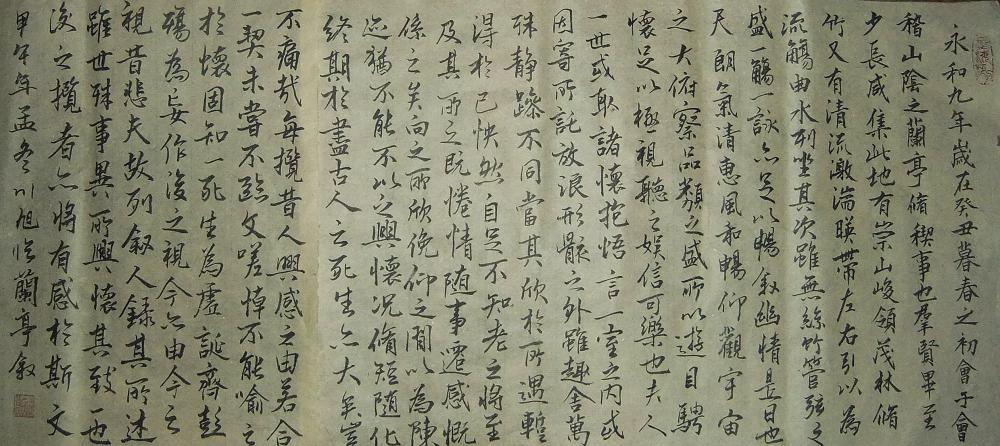 永和九年歲在癸丑暮春之初會于會
稽山陰之蘭亭脩稧事也羣賢畢至
少長咸集此地有崇山峻領茂林脩
竹又有清流激湍暎帶左右引以為
流觴曲水列坐其次雖無絲竹管弦之
盛一觴一詠亦足以暢叙幽情是日也
天朗氣清惠風和暢仰觀宇宙
之大俯察品類之盛所以遊目騁
懷足以極視聽之娛信可樂也夫人
一世或取諸懷抱悟言一室之内或
因寄所託放浪形骸之外雖趣舍萬
殊静躁不同當其欣於所遇蹔
得於己怏然自足不知老之將至
及其所之既惓情随事遷感慨
係之矣向之所欣俛仰之閒以為陳
迹猶不能不以之興懷况脩短随化
終期於盡古人云死生亦大矣豈
不痛哉每攬昔人興感之由若合
一契未嘗不臨文嗟悼不能喻之
於懷固知一死生為虛誕齊彭
殤為妄作後之視今亦由今之
視昔悲夫故列叙人録其所述
雖世殊事異所興懷其致一也
後之攬者亦將有感於斯文
甲午年孟冬川旭临蘭亭叙